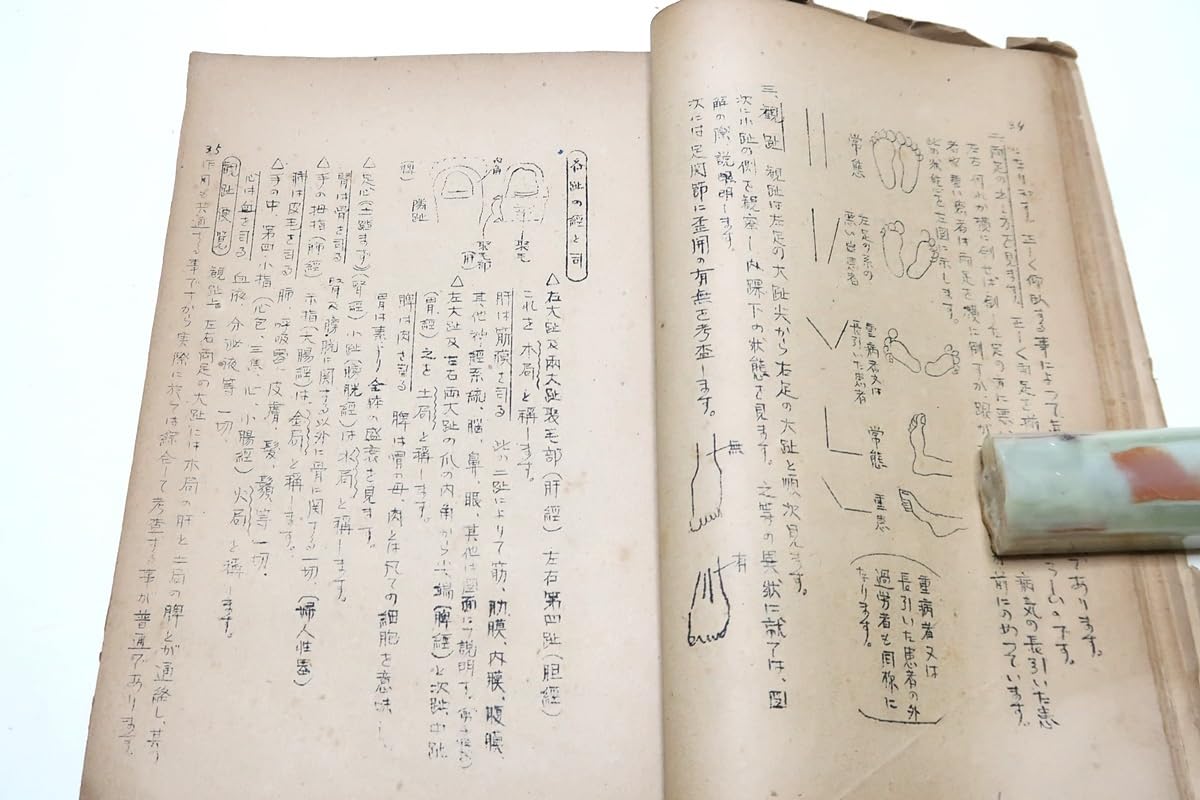 34
になります。正しく仰臥する事によって
二、両足のとり方を見ます。正しく両足を揃
左右何れか横に倒せば倒した足の方に悪い
者や重い患者は両足を横に倒すか、踵が
此の状態を左図に示します。
であります。
らしいのです。
病気の長引いた患
前にのめっています。
常態
左足の系の悪い出患者
重病者又は長引いた患者
常態
重患
重病者又は
長引いた患者の外
過労者も同様に
なります。
三、観趾 観趾は左足の大趾尖から右足の大趾と順次見ます。
次に小趾の側を観察し、内踝下の状態を見ます。之等の異状に就ては、図
解の際説明します。
次には足関節に歪用の有無を考査します。
無
有
35
各趾の經と司
聚毛
内角
聚毛部
(肝)
(脾)
腸趾
△右大趾及両大趾聚毛部(肝經) 左右第四趾(胆經)
これを木局と稱します。
肝は筋膜を司る 此の二趾によりて筋、肋膜、内膜、腹膜、
其他神經系統、脳、鼻、眼、其他は図面にて説明す。
△左大趾及左右両大趾の爪の内角から尖端(脾經)と次趾、中趾
(胃經)之を土局と稱します。
脾は肉を司る 脾は胃の母、肉とは凡ての細胞を意味し、
胃は素より全体の盛衰を見ます。
△足心(土踏まず)(腎經) 小趾(膀胱經)は水局と稱します。
腎は骨を司る 腎及膀胱に関する以外に骨に関する一切、(婦人性器)
△手の拇指(肺經) 示指(大腸經)は金局と稱します。
肺は皮毛を司る 肺、呼吸器、皮膚、髪、鬚等一切、
△手の中、第四、小指(心包、三焦、心、小腸經)火局と稱します。
心は血を司る 血液、分泌液等一切、
観趾要覧 観趾は左右両足の大趾には木局の肝と土局の脾とが連絡し、其の
作用も共通する事ですから実際に於ては綜合して考査する事が普通であります。